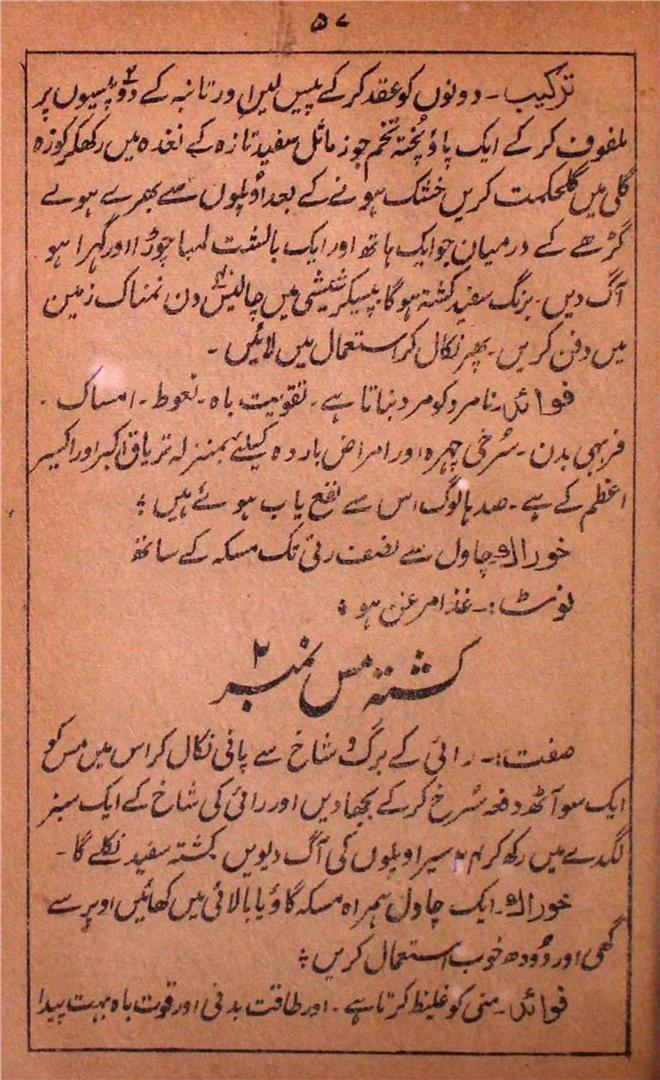 ۵۷
ترکیب۔ دونوں کو عقد کرکے پیس لیں اور تانبہ کے دو ۲ پیسیوں پر
ملفوف کرکے ایک پاؤ پختہ تخم جوز ماثل سفید تازہ کے نغدہ میں رکھکر کوزہ
گلی میں گلحکمت کریں خشک ہونے کے بعد اوپلوں سے بھرے ہوئے
گڑھے کے درمیان جو ایک ہاتھ اور ایک بالشت لمبا چوڑا اور گہرا ہو
آگ دیں۔ برنگ سفید کشتہ ہوگا۔ پیسکر شیشی میں چالیس دن نمناک زمین
میں دفن کریں۔ پھر نکال کر استعمال میں لائیں۔
فوائد۔ نامرد کو مرد بناتا ہے۔ تقویت باہ۔ نعوط۔ امساک۔
فربہی بدن۔ سُرخی چہرہ اور امراض باردہ کیلئے بمنزلہ تریاق اکبر اور اکسیر
اعظم کے ہے۔ صدہا لوگ اس سے نفع یاب ہوئے ہیں ؛
خوراک۔ چاول سے نصف رتی تک مسکہ کے ساتھ
نوٹ:۔ غذا مرغن ہو ؛
کشتہ مس نمبر ۲
صفت:۔ رائی کے برگ و شاخ سے پانی نکال کر اس میں مس کو
ایک سو آٹھ دفعہ سُرخ کرکے بجھا دیں اور رائی کی شاخ کے ایک سبز
لگدے میں رکھ کر سیر اوپلوں کی آگ دیویں کشتہ سفید نکلے گا۔
خوراک۔ ایک چاول ہمراہ مسکہ گاؤ یا بالائی میں کھائیں اوپر سے
گھی اور دُودھ خوب استعمال کریں ؛
فوائد۔ منی کو غلیظ کرتا ہے۔ اور طاقت بدنی اور قوت باہ بہت پیدا